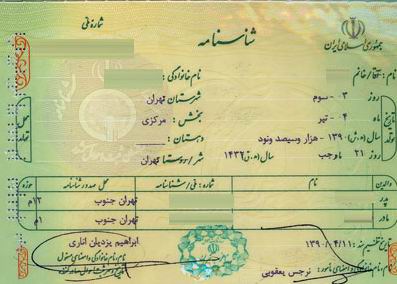 شماره ملی
جمهوری اسلامی ایران
شناسنامه
آقا/خانم : نام خانوادگی :
روز ۳ - سوم شهرستان تهران
ماه ۴ - تیر بخش : مرکزی
سال (ه.ش) ۱۳۹۰ - هزار وسیصد ونود دهستان :
روز ۲۱ ماه رجب سال (ه.ق) ۱۴۳۲ شهر/روستا تهران
تاریخ تولد
محل تولد
والدین نام شماره : ملی/شناسنامه محل صدور شناسنامه حوزه
پدر تهران جنوب ۱۲م
مادر تهران جنوب ۱م
تاریخ تنظیم سند : ۱۳۹۰/۰۴/۱۱ ابراهیم یزدیان اناری
نام، نام خانوادگی و امضای مأمور : نرجس یعقوبی